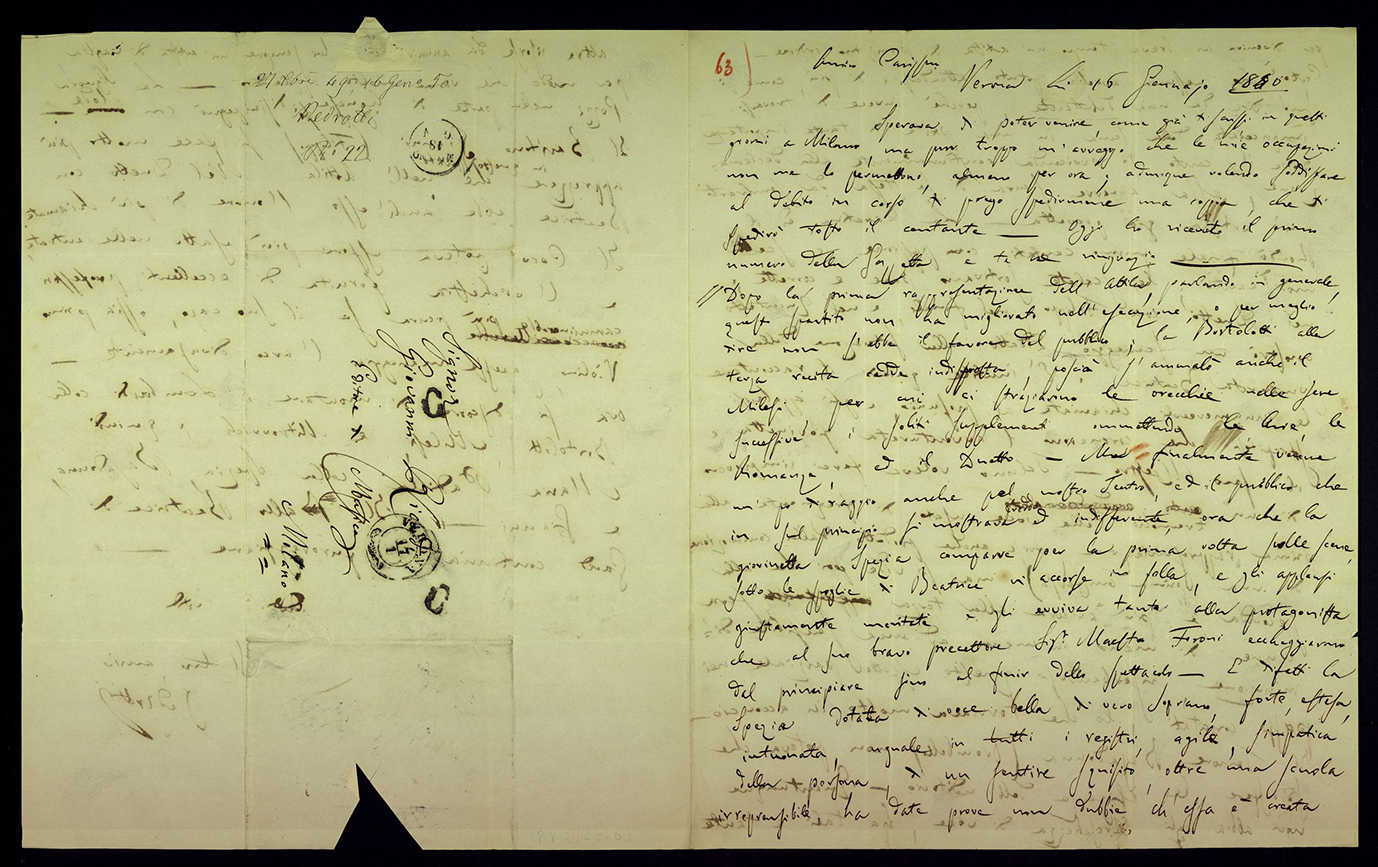 Pedrotti
Signor
Giovanni Ricordi
Editore di
Musica
Milano
63
Amico Cariss.mo
Verona li 16 Gennajo 1850
Sperava di poter venire, come già ti scrissi in questi
giorni a Milano, ma pur troppo m'avveggo che le mie occupazioni
non me lo permettono, almeno per ora; adunque volendo soddisfare
al debito in corso ti prego spedirmene una coppia che ti
spedirò tosto il contante — Oggi ho ricevuto il primo
numero della Gazzetta e te ne ringrazio
Dopo la prima rappresentazione dell'Attila, parlando in generale,
questo spartito non ha migliorato nell'esecuzione, o per meglio
dire non s'ebbe il favore del pubblico; la Bortolotti alla
terza recita cadde indisposta, poscia s'ammalò anche il
Milesi per cui ci straziarono le orecchie nelle sere
successive i soliti supplementi ommettendo le Arie, le
Romanze, ed il Duetto — Ma finalmente venne
un po' di raggio anche pel nostro Teatro, ed il pubblico che
in sul principio si mostrava indifferente, ora che la
giovinetta Spezia comparve per la prima volta sulle scene
sotto le spoglie di Beatrice vi accorse in folla, e gli applausi
giustamente meritati e gli evviva tanto alla protagonista
che al suo bravo precettore Sig.r Maestro Foroni eccheggiarono
dal principiare fino al finir dello spettacolo — E difatti la
Spezia dotata di voce bella di vero Soprano, forte, estesa,
intuonata, eguale in tutti i registri, agile, simpatica
della persona, di un sentire squisito, oltre una scuola
irreprensibile, ha date prove non dubbie ch'essa è creata